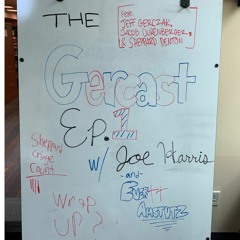 THE
feat.
JEFF GERCZAK,
JACOB DUNENBERGER,
& SHEPPARD DENTON
Gercast
Ep. 1
w/ Joe Harris
-and-
EVERETT
AMSTUTZ
Sheppard
cringe
Count
WraP
UP?